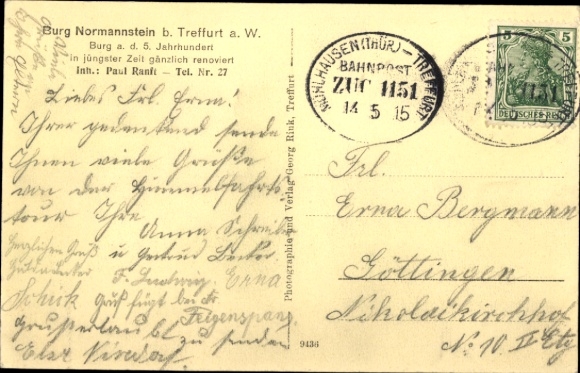 Burg Normannstein b. Treffurt a. W.
Burg a. d. 5. Jahrhundert
in jüngster Zeit gänzlich renoviert
Inh.: Paul Ranft — Tel. Nr. 27
Liebes Frl. Erna!
Ihrer gedenkend sende
Ihnen viele Grüße
von der Himmelfahrts-
tour Ihre
Anna Schreiber
herzlichen Gruß u Gertrud Becker.
F. Ludwig. Erna
Schick Gruß fügt bei Fr.
Feigenspang.
Gruß erlaubt zu senden
Photographie und Verlag Georg Rink, Treffurt
9436
MÜHLHAUSEN (THÜR) — TREFFURT
BAHNPOST
ZUG 1151
14 5 15
5 5
1151
DEUTSCHES REICH
Frl.
Erna Bergmann
Göttingen
Nikolaikirchhof
No 10 II Etg